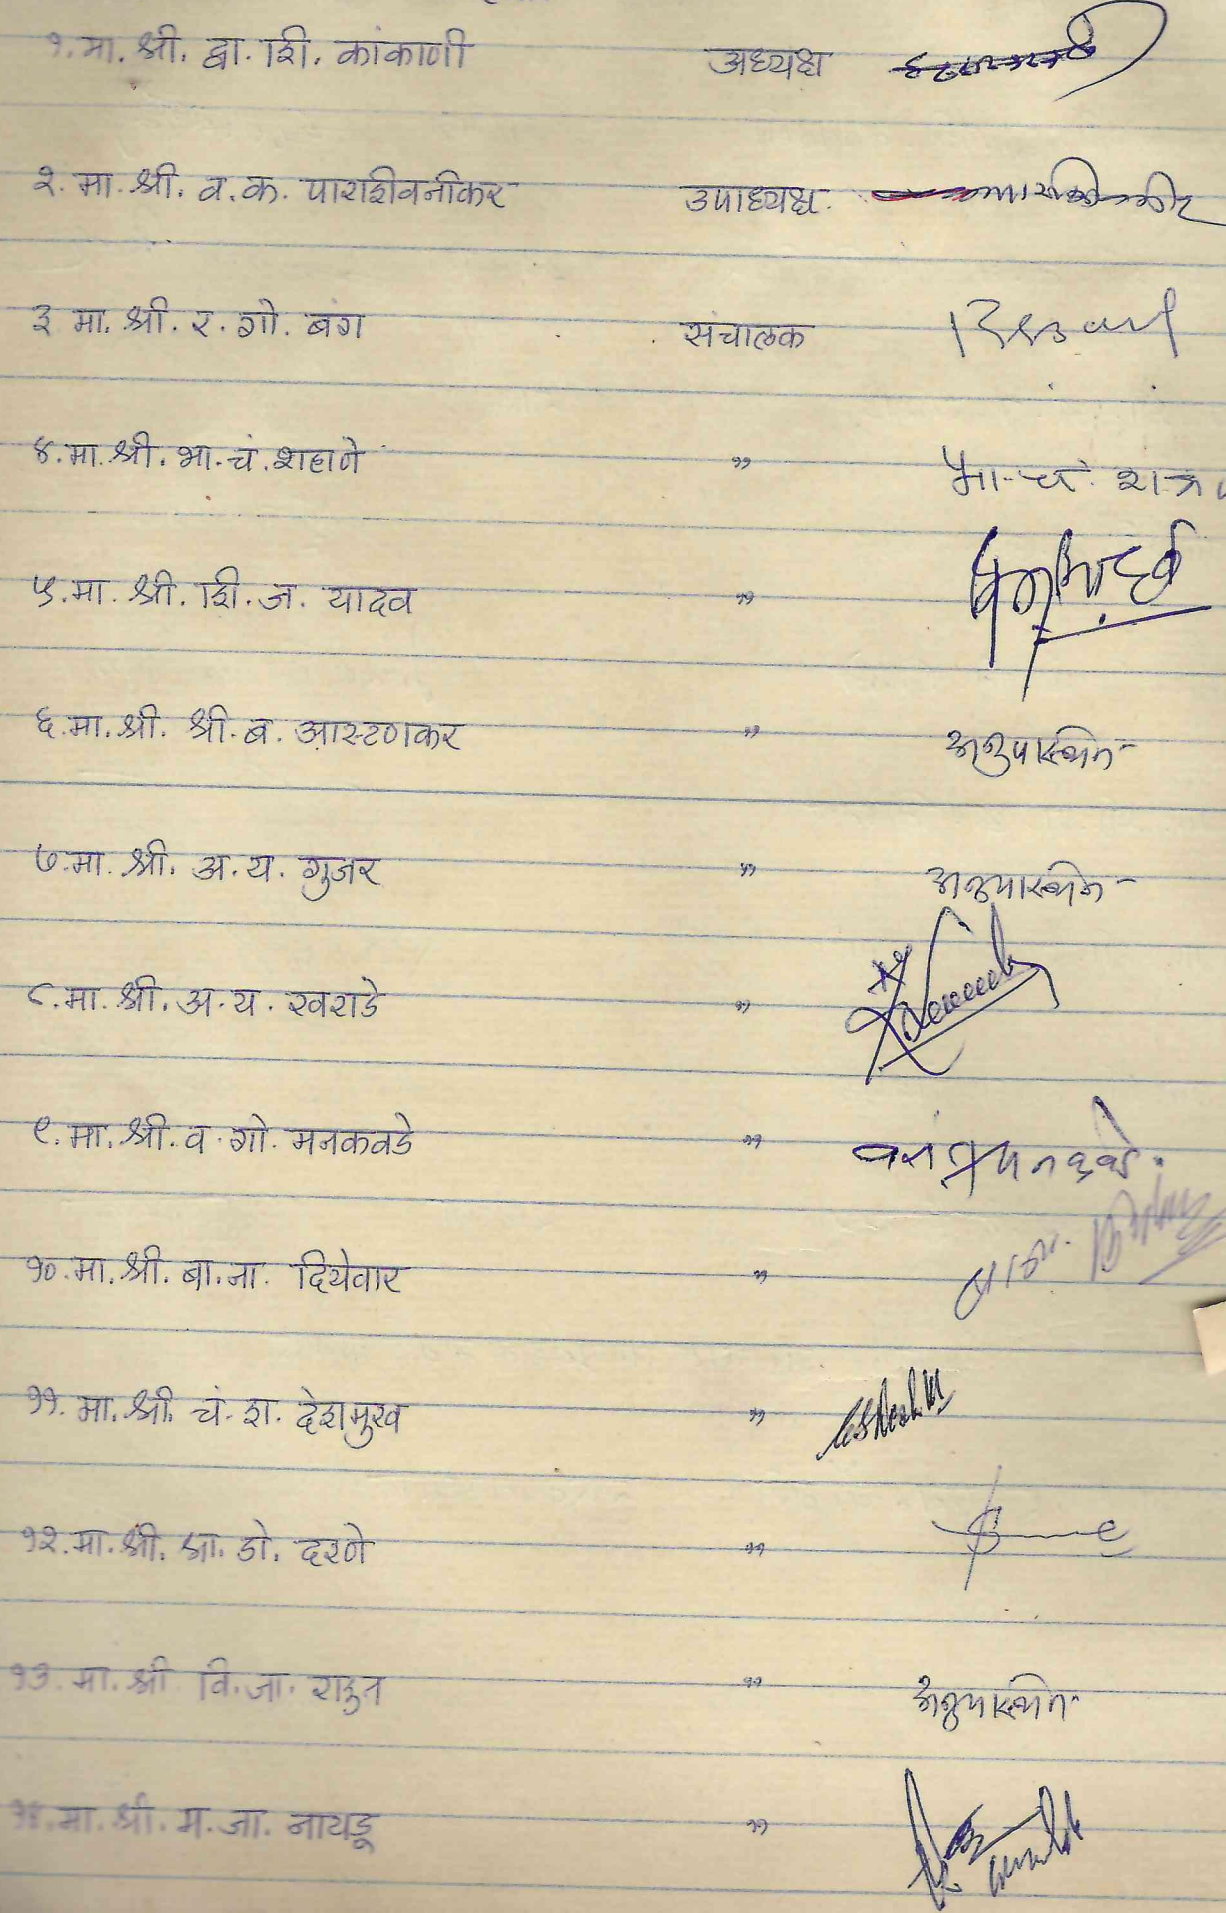 १. मा. श्री. द्वा. शि. कांकाणी अध्यक्ष
२. मा. श्री. व. क. पाराशिवनीकर उपाध्यक्ष.
३ मा. श्री. र. गो. बंग संचालक
४. मा. श्री. भा. चं. शहाणे " भा. चं.
५. मा. श्री. शि. ज. यादव "
६. मा. श्री. श्री. ब. आस्टणकर " अनुपस्थित
७. मा. श्री. अ. य. गुजर " अनुपस्थित
८. मा. श्री. अ. य. खराडे "
९. मा. श्री. व. गो. मनकवडे "
१०. मा. श्री. बा. ना. दियेवार "
११. मा. श्री. चं. श. देशमुख "
१२. मा. श्री. श्रा. डो. दरणे "
१३. मा. श्री वि. जा. राऊत " अनुपस्थित
१४. मा. श्री. म. जा. नायडू "